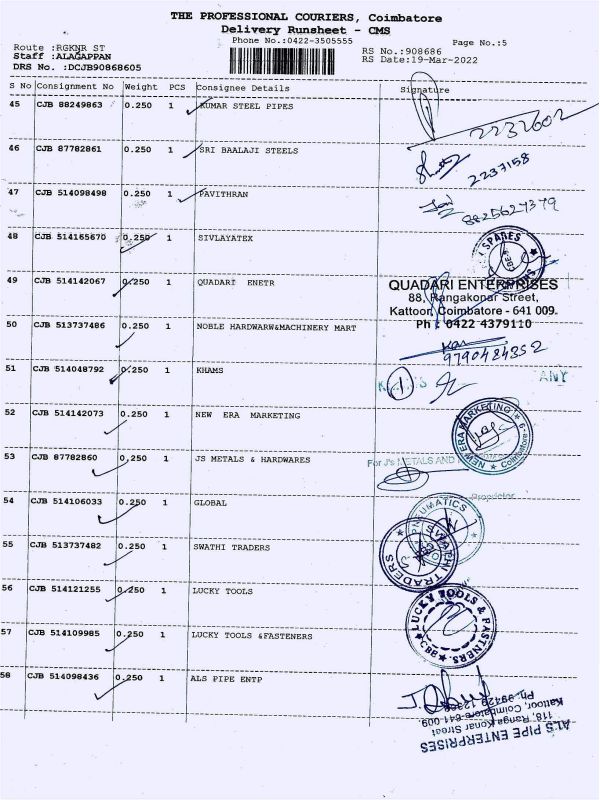 THE PROFESSIONAL COURIERS, Coimbatore
Delivery Runsheet - CMS
Phone No.:0422-3505555
Page No.:5
Route :RGKNR ST
RS No.:908686
Staff :ALAGAPPAN
RS Date:19-Mar-2022
DRS No. :DCJB90868605
S No Consignment No Weight PCS Consignee Details Signature
45 CJB 88249863 0.250 1 KUMAR STEEL PIPES
2232602
46 CJB 87782861 0.250 1 SRI BAALAJI STEELS
2237158
47 CJB 514098498 0.250 1 PAVITHRAN
8825627379
48 CJB 514165670 0.250 1 SIVLAYATEX
SPARES
49 CJB 514142067 0.250 1 QUADARI ENETR
QUADARI ENTERPRISES
88, Rangakonar Street,
Kattoor, Coimbatore - 641 009.
Ph : 0422 4379110
50 CJB 513737486 0.250 1 NOBLE HARDWARW&MACHINERY MART
9790484352
51 CJB 514048792 0.250 1 KHAMS
1
ANY
52 CJB 514142073 0.250 1 NEW ERA MARKETING
NEW ERA MARKETING * Coimbatore-9 *
53 CJB 87782860 0,250 1 JS METALS & HARDWARES
For J's METALS AND
Proprietor
54 CJB 514106033 0.250 1 GLOBAL
PNEUMATICS
55 CJB 513737482 0.250 1 SWATHI TRADERS
SWATHI TRADERS
56 CJB 514121255 0.250 1 LUCKY TOOLS
LUCKY TOOLS & FASTNERS. * CBE *
57 CJB 514109985 0.250 1 LUCKY TOOLS &FASTENERS
58 CJB 514098436 0.250 1 ALS PIPE ENTP
ALS PIPE ENTERPRISES
118, Ranga Konar Street
Kattoor, Coimbatore-641 009